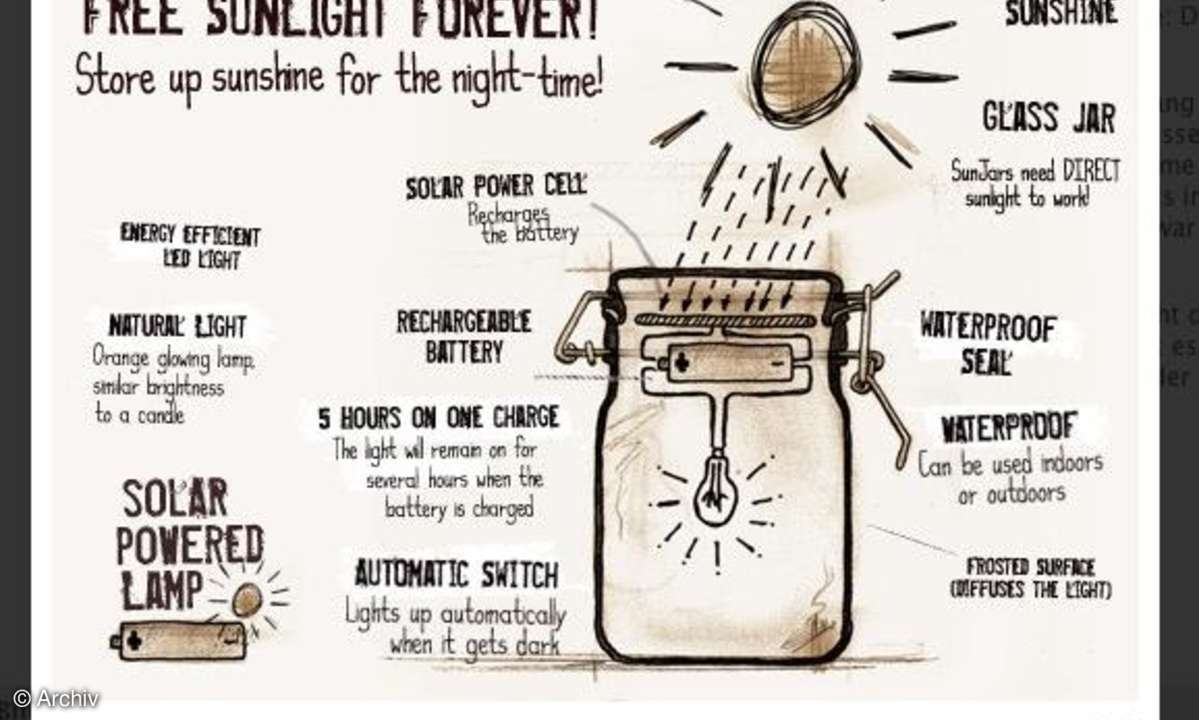 FREE SUNLIGHT FOREVER!
Store up sunshine for the night-time!
SUNSHINE
GLASS JAR
SunJars need DIRECT
sunlight to work!
SOLAR POWER CELL
Recharges
the battery
ENERGY EFFICIENT
LED LIGHT
NATURAL LIGHT
Orange glowing lamp,
similar brightness
to a candle
RECHARGEABLE
BATTERY
5 HOURS ON ONE CHARGE
The light will remain on for
several hours when the
battery is charged
WATERPROOF
SEAL
WATERPROOF
Can be used indoors
or outdoors
SOLAR
POWERED
LAMP
AUTOMATIC SWITCH
Lights up automatically
when it gets dark
FROSTED SURFACE
(DIFFUSES THE LIGHT)
+ -
+ -
© Archiv